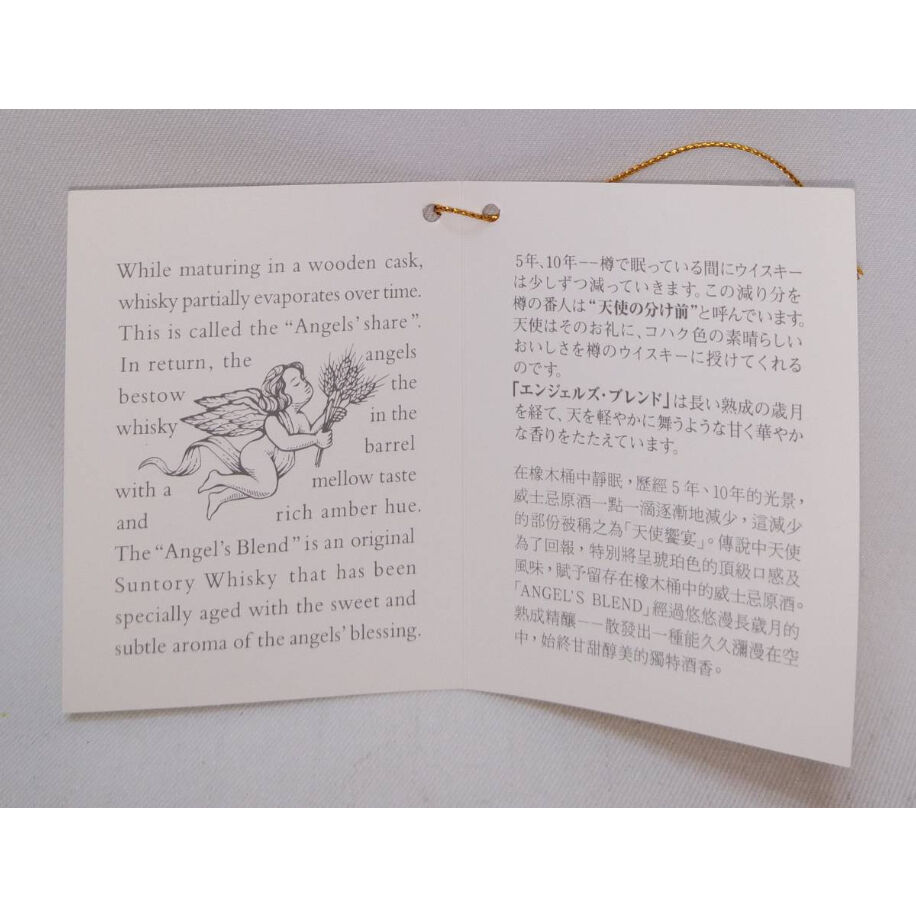 While maturing in a wooden cask,
whisky partially evaporates over time.
This is called the “Angels’ share”.
In return, the angels
bestow the
whisky in the
barrel
with a mellow taste
and rich amber hue.
The “Angel’s Blend” is an original
Suntory Whisky that has been
specially aged with the sweet and
subtle aroma of the angels’ blessing.
5年、10年−−樽で眠っている間にウイスキー
は少しずつ減っていきます。この減り分を
樽の番人は“天使の分け前”と呼んでいます。
天使はそのお礼に、コハク色の素晴らしい
おいしさを樽のウイスキーに授けてくれる
のです。
「エンジェルズ・ブレンド」は長い熟成の歳月
を経て、天を軽やかに舞うような甘く華やか
な香りをたたえています。
在橡木桶中靜眠，歷經5年、10年的光景，
威士忌原酒一點一滴逐漸地減少，這減少
的部份被稱之為「天使饗宴」。傳說中天使
為了回報，特別將呈琥珀色的頂級口感及
風味，賦予留存在橡木桶中的威士忌原酒。
「ANGEL'S BLEND」經過悠悠漫長歲月的
熟成精釀−−散發出一種能久久瀰漫在空
中，始終甘甜醇美的獨特酒香。